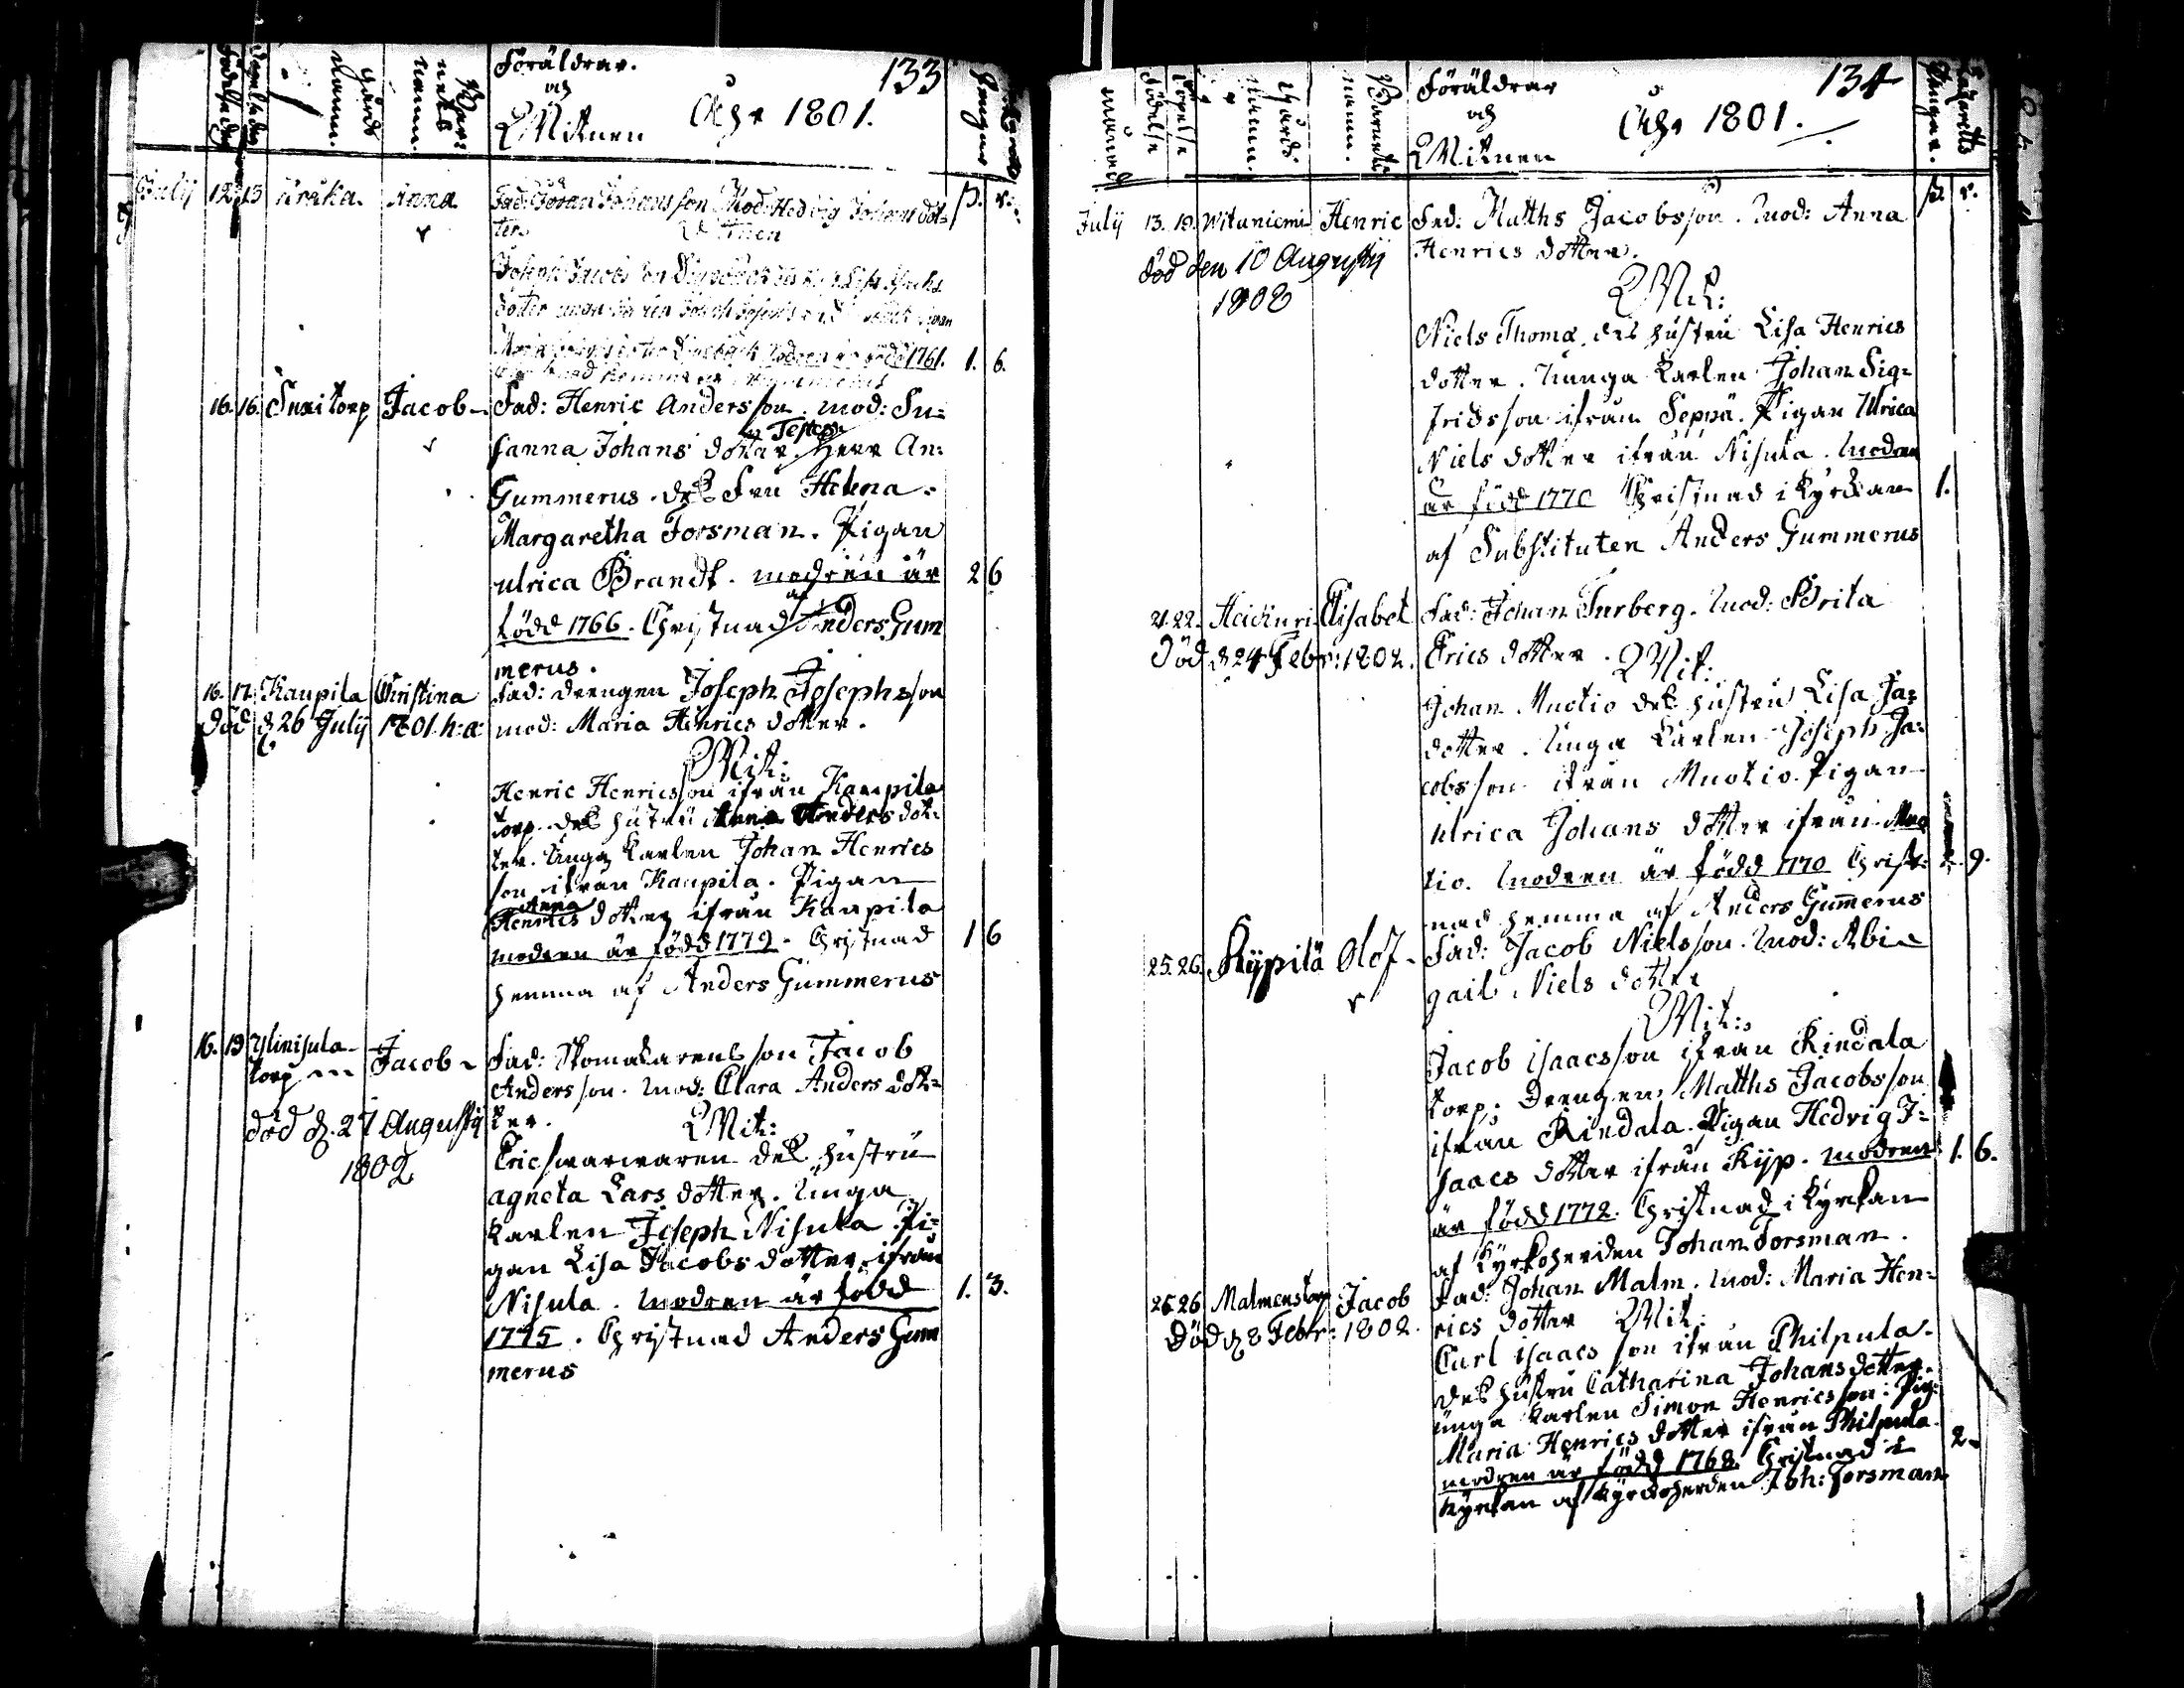 Föräldrar.
och
Witnen
Åhr 1801.
133
July 12 13 Kråka. Anna
Fad: Göran Johansson Mod: Hedvig Johans dot-
ter.
Witnen
1761. 1. 6.
16. 16. Suxitorp Jacob
Fad: Henric Andersson. mod: Su-
sanna Johans dotter. Testes Herr An:
Gummerus. dess Fru Helena
Margaretha Forsman. Pigan
Ulrica Brandt. modren är 2 6
född 1766. Christnad af Anders Gum
merus.
16. 17. Kaupila Christina
Fad: drengen Joseph Josephsson
död d. 26 July 1801. h: a:
mod: Maria Henrics dotter.
Wit:
Henric Henricsson ifrån Kaupila
torp. dess hustru Anna Anders dot-
ter. Unga Karlen Johan Henrics
son ifrån Kaupila. Pigan
Anna
Henrics dotter ifrån Kaupila
modren är född 1779. Christnad 1 6
hemma af Anders Gummerus
16. 19 Ylinisula
torp Jacob
Fad: Skomakarens son Jacob
Andersson. Mod: Clara Anders dot-
död d. 27 Augusty
1802
ter. Wit:
Eric swarwaren dess hustru
Agneta Lars dotter. Unga
Karlen Joseph Nisula. Pi-
gan Lisa Jacobs dotter ifrån
Nisula. Modren är född 1. 3.
1775. Christnad Anders Gum
merus
månad
Födelse
Gårds
namn.
Barnets
namn.
Föräldrar
och
Witnen
Åhr 1801.
134
July 13. 19. Wituniemi Henric
Fad: Matths Jacobsson. Mod: Anna
död den 10 Augusty
1808
Henrics dotter.
Wit:
Niels Thoma. des hustru Lisa Henrics
dotter. Unga Karlen Johan Sig-
fridsson ifrån Seppä. Pigan Ulrica
Niels dotter ifrån Nisula. Modren
är född 1770 Christnad i Kyrckan 1.
af Substituten Anders Gummerus
21. 22. Heickuri Elisabet
Fad: Johan Turberg. Mod: Brita
Död d 24 Febr: 1802.
Erics dotter. Wit:
Johan Muotio des hustru Lisa Ja-
dotter. Unga Karlen Joseph Ja-
cobsson ifrån Muotio. Pigan
Ulrica Johans dotter ifrån Muo
tio. Modren är född 1770 Christ- 9.
nad hemma af Anders Gummerus
25. 26. Kypilä Olof
Fad: Jacob Nielsson. Mod: Abi-
gail Niels dotter
Wit:
Jacob Isaacsson ifrån Rindala
torp. Drengen Matths Jacobsson
ifrån Rindala. Pigan Hedvig I-
saacs dotter ifrån Kyp. modren 1. 6.
är född 1772. Christnad i Kyrkan
af Kyrkoherden Johan Forsman.
25 26 Malmenstorp Jacob
Fad: Johan Malm. Mod: Maria Hen-
Död d 8 Febr: 1802.
rics dotter Wit:
Carl Isaacsson ifrån Philpula.
des hustru Catharina Johans dotter.
unga karlen Simon Henricsson: Pig:
Maria Henrics dotter ifrån Philpula 2-
modren är född 1768 Christnad i
Kyrkan af Kyrckoherden Joh: Forsman